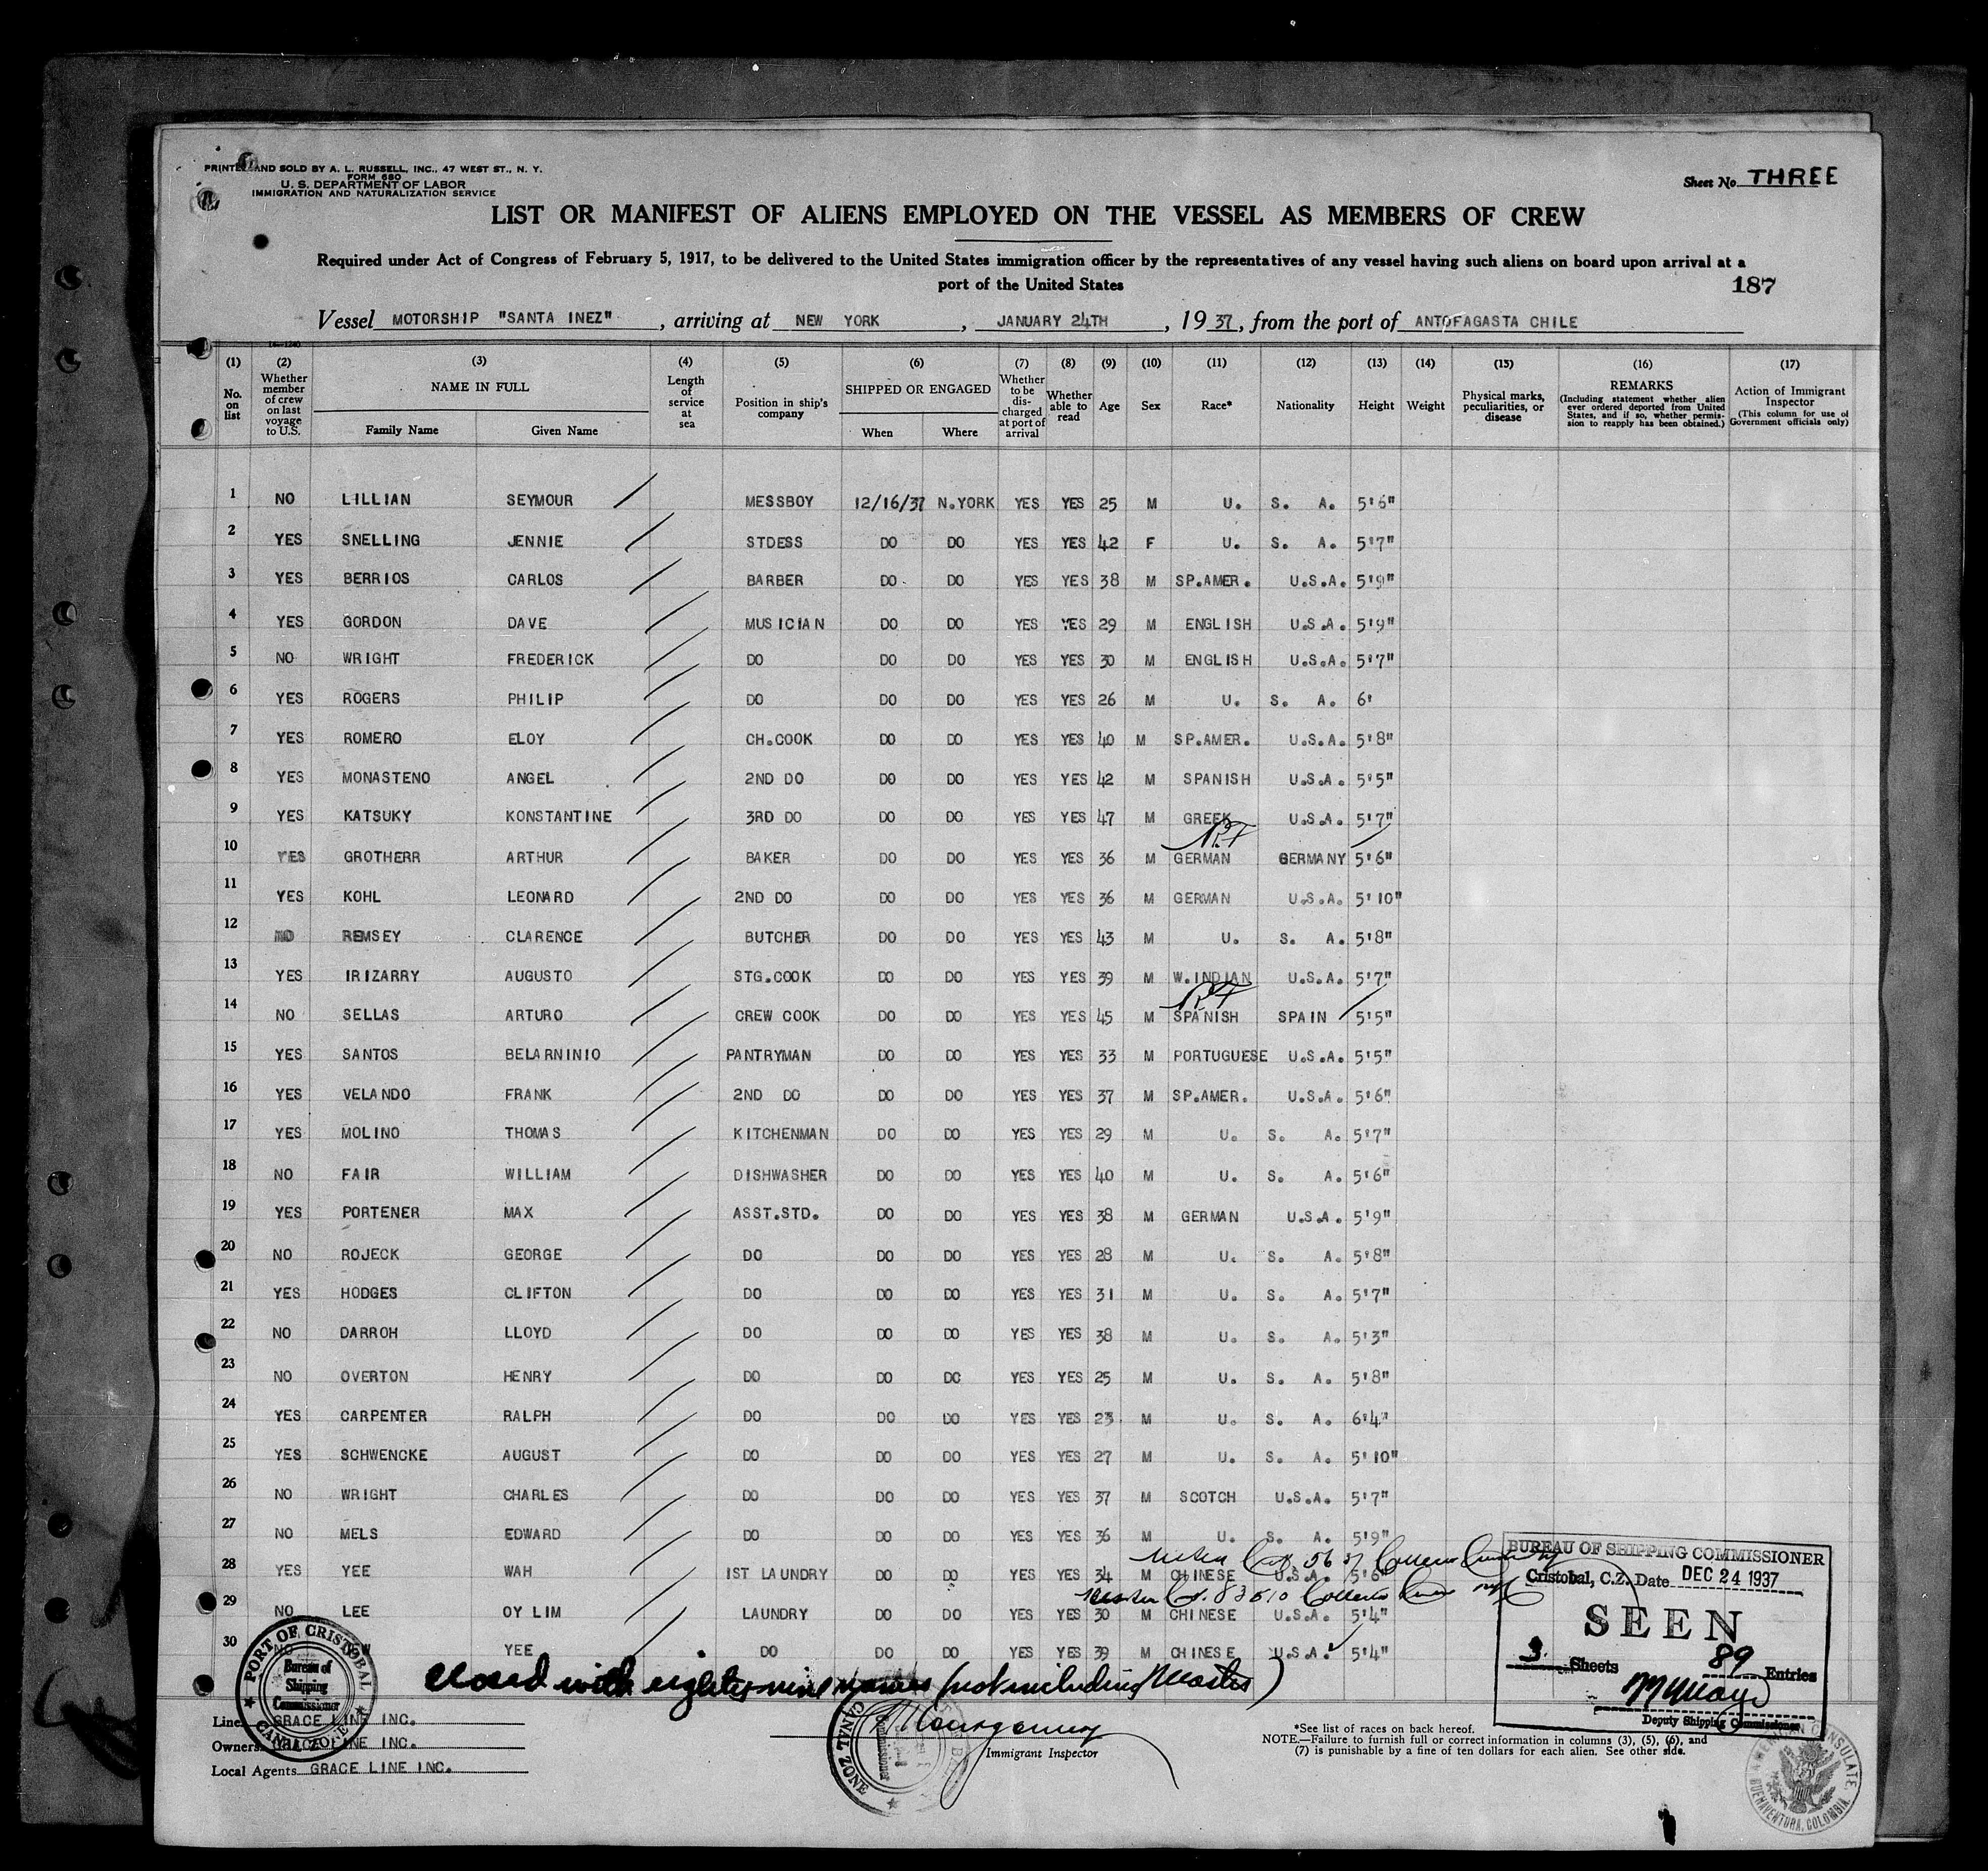 PRINTED AND SOLD BY A. L. RUSSELL, INC., 47 WEST ST., N. Y.
FORM 680
U. S. DEPARTMENT OF LABOR
IMMIGRATION AND NATURALIZATION SERVICE
Sheet No. THREE
LIST OR MANIFEST OF ALIENS EMPLOYED ON THE VESSEL AS MEMBERS OF CREW
Required under Act of Congress of February 5, 1917, to be delivered to the United States immigration officer by the representatives of any vessel having such aliens on board upon arrival at a
port of the United States
187
Vessel MOTORSHIP "SANTA INEZ", arriving at NEW YORK, JANUARY 24TH, 1937, from the port of ANTOFAGASTA CHILE
(1) No. on list
(2) Whether member of crew on last voyage to U.S.
(3) NAME IN FULL Family Name Given Name
(4) Length of service at sea
(5) Position in ship's company
(6) SHIPPED OR ENGAGED When Where
(7) Whether to be discharged at port of arrival
(8) Whether able to read
(9) Age
(10) Sex
(11) Race*
(12) Nationality
(13) Height
(14) Weight
(15) Physical marks, peculiarities, or disease
(16) REMARKS (Including statement whether alien ever ordered deported from United States, and if so, whether permission to reapply has been obtained.)
(17) Action of Immigrant Inspector (This column for use of Government officials only)
1 NO LILLIAN SEYMOUR MESSBOY 12/16/37 N.YORK YES YES 25 M U. S. A. 5'6"
2 YES SNELLING JENNIE STDESS DO DO YES YES 42 F U. S. A. 5'7"
3 YES BERRIOS CARLOS BARBER DO DO YES YES 38 M SP.AMER. U.S.A. 5'9"
4 YES GORDON DAVE MUSICIAN DO DO YES YES 29 M ENGLISH U.S.A. 5'9"
5 NO WRIGHT FREDERICK DO DO DO YES YES 30 M ENGLISH U.S.A. 5'7"
6 YES ROGERS PHILIP DO DO DO YES YES 26 M U. S. A. 6'
7 YES ROMERO ELOY CH.COOK DO DO YES YES 40 M SP.AMER. U.S.A. 5'8"
8 YES MONASTENO ANGEL 2ND DO DO DO YES YES 42 M SPANISH U.S.A. 5'5"
9 YES KATSUKY KONSTANTINE 3RD DO DO DO YES YES 47 M GREEK U.S.A. 5'7"
10 YES GROTHERR ARTHUR BAKER DO DO YES YES 36 M GERMAN GERMANY 5'6"
11 YES KOHL LEONARD 2ND DO DO DO YES YES 36 M GERMAN U.S.A. 5'10"
12 NO REMSEY CLARENCE BUTCHER DO DO YES YES 43 M U. S. A. 5'8"
13 YES IRIZARRY AUGUSTO STG.COOK DO DO YES YES 39 M W.INDIAN U.S.A. 5'7"
14 NO SELLAS ARTURO CREW COOK DO DO YES YES 45 M SPANISH SPAIN 5'5"
15 YES SANTOS BELARNINIO PANTRYMAN DO DO YES YES 33 M PORTUGUESE U.S.A. 5'5"
16 YES VELANDO FRANK 2ND DO DO DO YES YES 37 M SP.AMER. U.S.A. 5'6"
17 YES MOLINO THOMAS KITCHENMAN DO DO YES YES 29 M U. S. A. 5'7"
18 NO FAIR WILLIAM DISHWASHER DO DO YES YES 40 M U. S. A. 5'6"
19 YES PORTENER MAX ASST.STD. DO DO YES YES 38 M GERMAN U.S.A. 5'9"
20 NO ROJECK GEORGE DO DO DO YES YES 28 M U. S. A. 5'8"
21 YES HODGES CLIFTON DO DO DO YES YES 31 M U. S. A. 5'7"
22 NO DARROH LLOYD DO DO DO YES YES 38 M U. S. A. 5'3"
23 NO OVERTON HENRY DO DO DO YES YES 25 M U. S. A. 5'8"
24 YES CARPENTER RALPH DO DO DO YES YES 23 M U. S. A. 6'4"
25 YES SCHWENCKE AUGUST DO DO DO YES YES 27 M U. S. A. 5'10"
26 NO WRIGHT CHARLES DO DO DO YES YES 37 M SCOTCH U.S.A. 5'7"
27 NO MELS EDWARD DO DO DO YES YES 36 M U. S. A. 5'9"
28 YES YEE WAH IST LAUNDRY DO DO YES YES 34 M CHINESE U.S.A. 5'6"
29 NO LEE OY LIM LAUNDRY DO DO YES YES 30 M CHINESE U.S.A. 5'4"
30 NO YEE DO DO DO YES YES 39 M CHINESE U.S.A. 5'4"
closed with eighty-nine names (not including Master)
BUREAU OF SHIPPING COMMISSIONER
Cristobal, C.Z. Date DEC 24 1937
SEEN
3 Sheets 89 Entries
Deputy Shipping Commissioner
PORT OF CRISTOBAL
Bureau of
Shipping
Commissioner
CANAL ZONE
Line GRACE LINE INC.
Owners GRACE LINE INC.
Local Agents GRACE LINE INC.
CANAL ZONE
Immigrant Inspector
*See list of races on back hereof.
NOTE.—Failure to furnish full or correct information in columns (3), (5), (6), and
(7) is punishable by a fine of ten dollars for each alien. See other side.
AMERICAN CONSULATE
BUENAVENTURA, COLOMBIA.